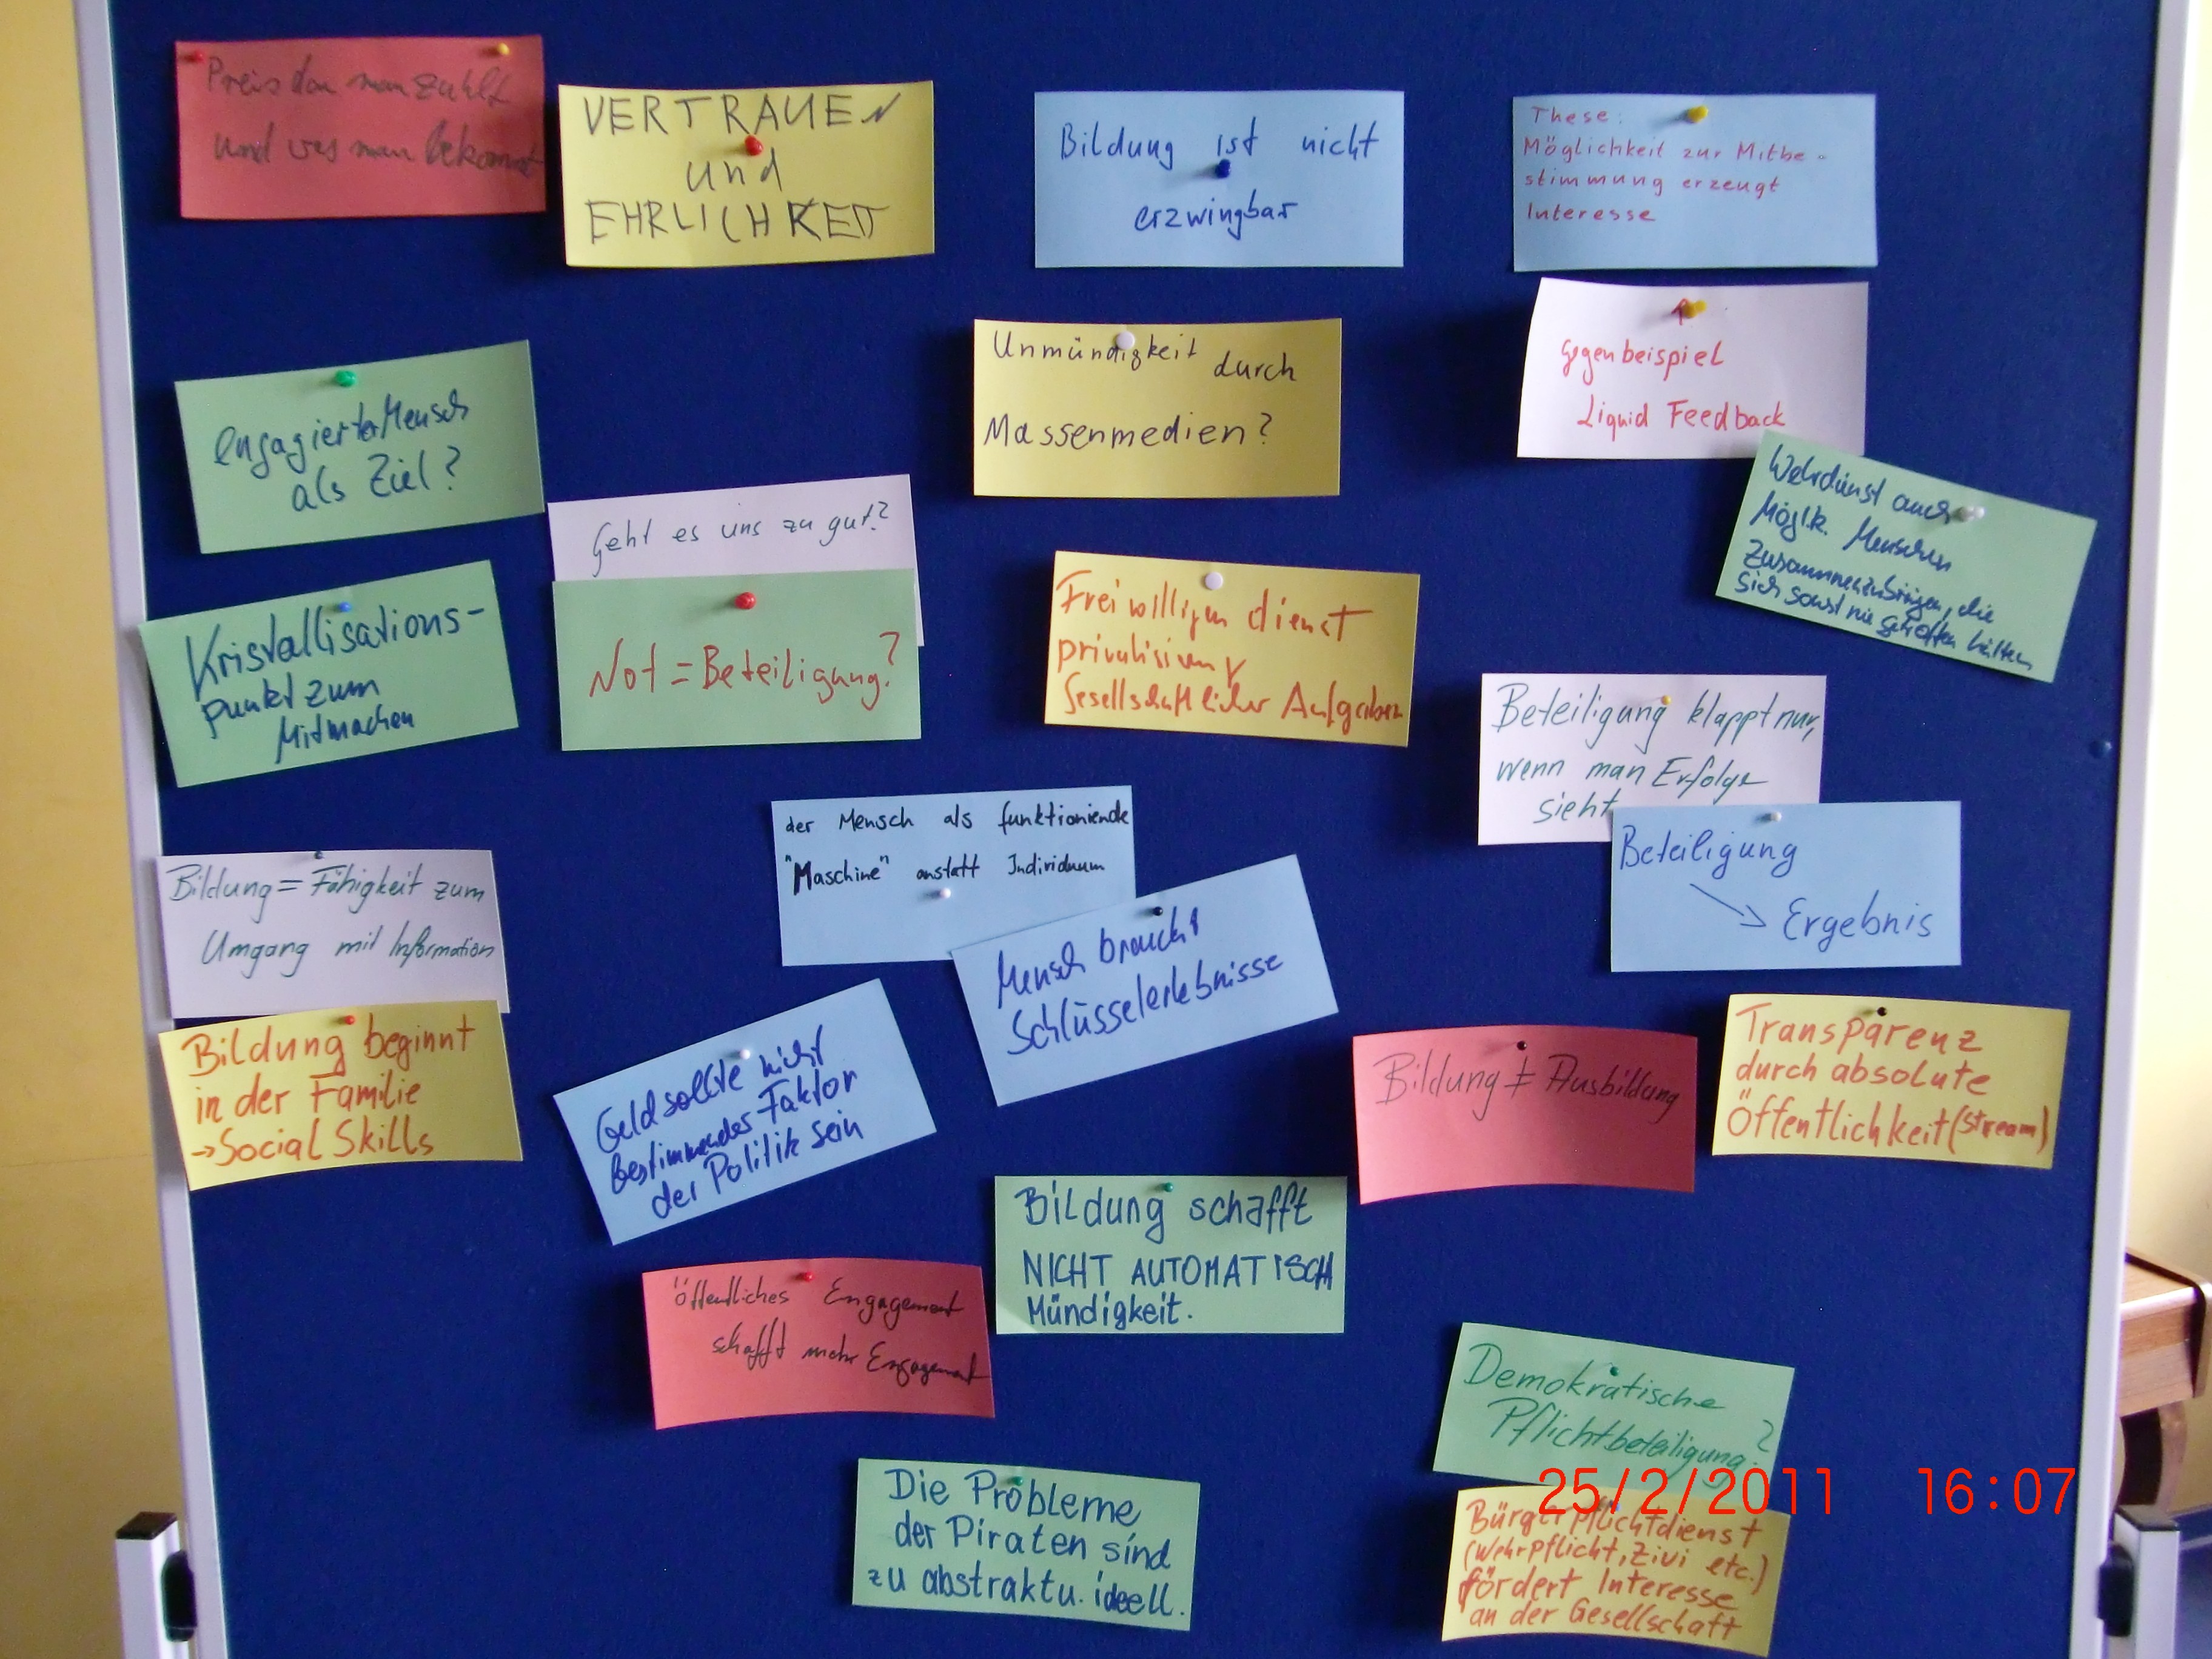 Preis den man zahlt
und was man bekommt
VERTRAUEN
und
EHRLICHKEIT
Bildung ist nicht
erzwingbar
These:
Möglichkeit zur Mitbe-
stimmung erzeugt
Interesse
Gegenbeispiel
Liquid Feedback
engagierter Mensch
als Ziel?
Unmündigkeit durch
Massenmedien?
Wehrdienst auch
Möglk. Menschen
zusammenzubringen, die
sich sonst nie getroffen hätten
Geht es uns zu gut?
Not = Beteiligung?
Kristallisations-
punkt zum
Mitmachen
Freiwilligendienst
privatisieren
gesellschaftlicher Aufgaben
Beteiligung klappt nur,
wenn man Erfolge
sieht
Beteiligung
→ Ergebnis
der Mensch als funktionierende
"Maschine" anstatt Individuum
Mensch braucht
Schlüsselerlebnisse
Bildung = Fähigkeit zum
Umgang mit Information
Bildung beginnt
in der Familie
→ Social Skills
Geld sollte nicht
bestimmender Faktor
der Politik sein
Bildung ≠ Ausbildung
Transparenz
durch absolute
Öffentlichkeit (Stream)
Bildung schafft
NICHT AUTOMATISCH
Mündigkeit.
öffentliches Engagement
schafft mehr Engagement
Demokratische
Pflichtbeteiligung?
Die Probleme
der Piraten sind
zu abstrakt u. ideell.
25/2/2011 16:07
Bürgerpflichtdienst
(Wehrpflicht, Zivi etc.)
fördert Interesse
an der Gesellschaft